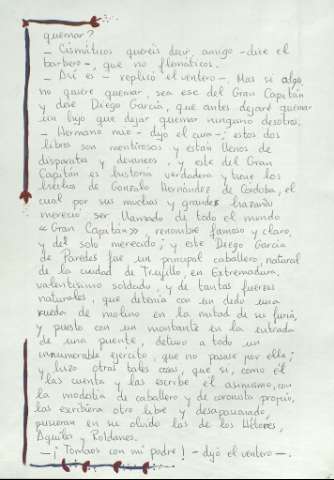 quemar?
– Cismáticos queréis decir, amigo –dijo el
barbero–, que no flemáticos.
– Así es – replicó el ventero –. Mas si algo
no quiere quemar, sea ese del Gran Capitán
y dese Diego García, que antes dejaré quemar
un hijo que dejar quemar ninguno desotros.
– Hermano mío – dijo el cura –; estos dos
libros son mentirosos y están llenos de
disparates y devaneos, y este del Gran
Capitán es historia verdadera y tiene los
hechos de Gonzalo Hernández de Córdoba, el
cual por sus muchas y grandes hazañas
mereció ser llamado de todo el mundo
«Gran Capitán», renombre famoso y claro,
y del solo merecido; y este Diego García
de Paredes fue un principal caballero, natural
de la ciudad de Trujillo, en Extremadura,
valentísimo soldado, y de tantas fuerzas
naturales, que detenía con un dedo una
rueda de molino en la mitad de su furia,
y puesto con un montante en la entrada
de una puente, detuvo a todo un
innumerable ejército, que no pasase por ella;
y hizo otras tales cosas, que si, como él
las cuenta y las escribe él asimismo, con
la modestia de caballero y de coronista propio,
las escribiera otro libre y desapasionado,
pusieran en su olvido las de los Héctores,
Aquiles y Roldanes.
– ¡Tomaos con mi padre! – dijo el ventero –.